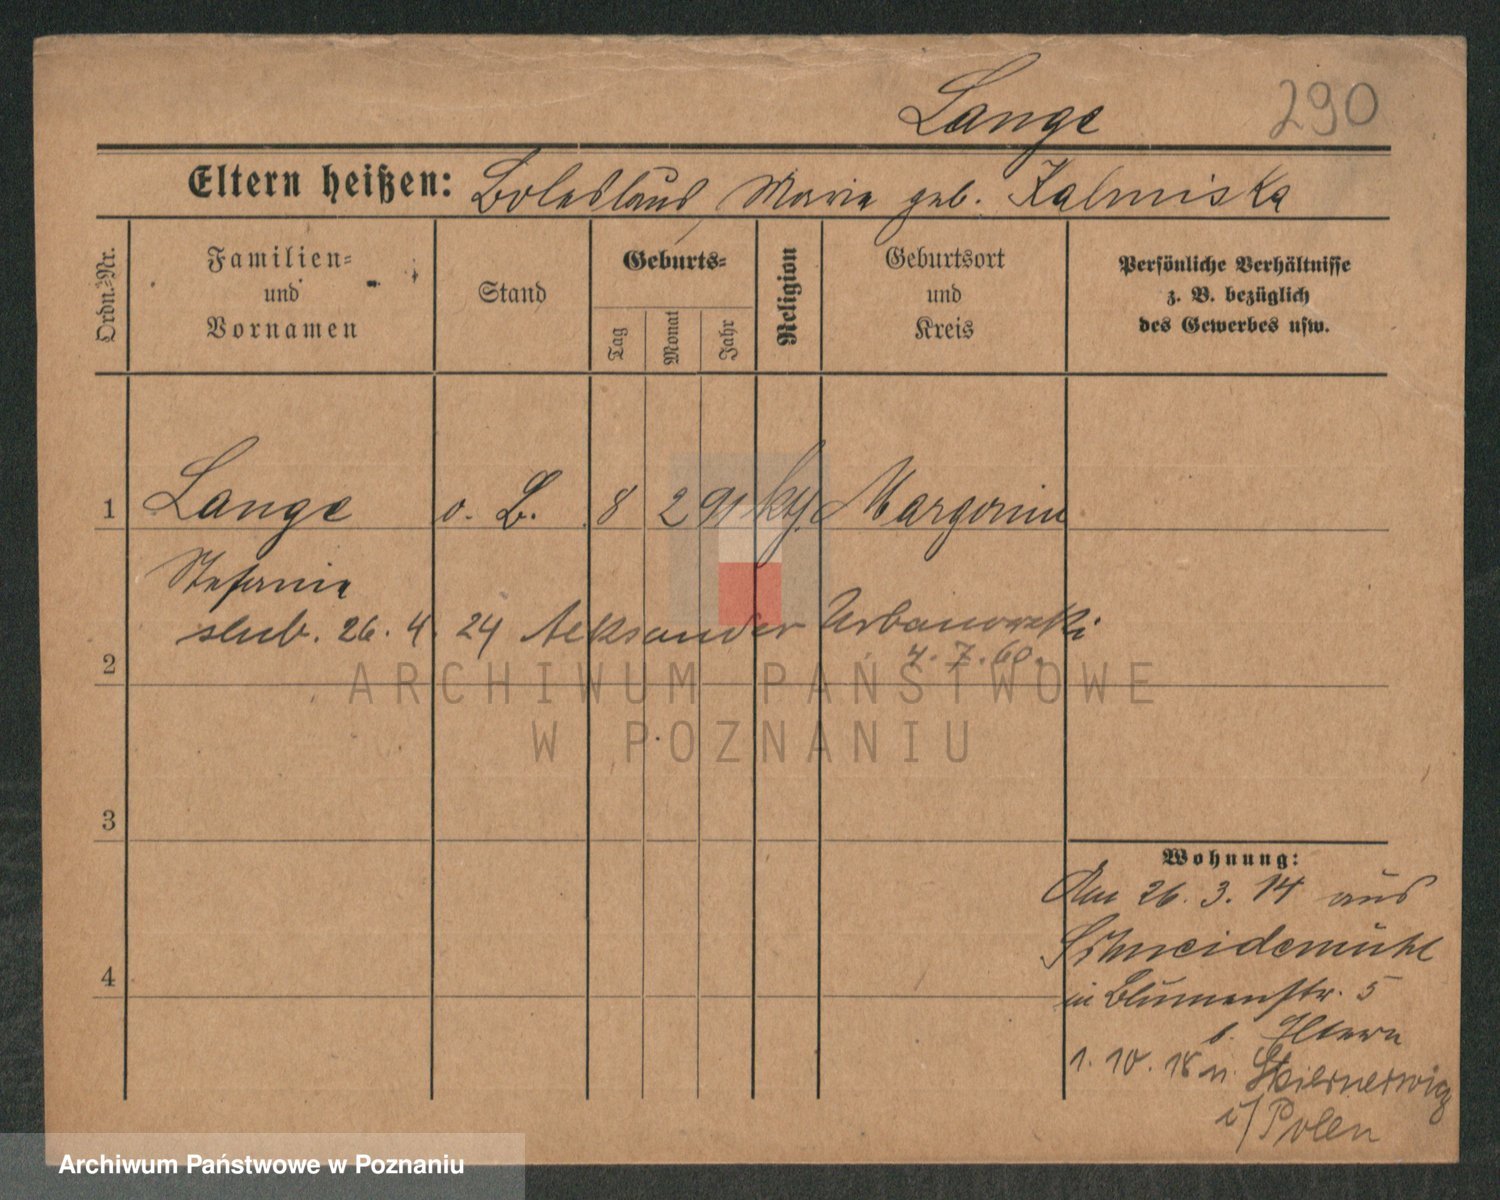 Lange 290
Eltern heißen: Boleslaus Maria geb. Kalmiska
Ordn.-Nr.
Familien-
und
Vornamen
Stand
Geburts-
Tag
Monat
Jahr
Religion
Geburtsort
und
Kreis
Persönliche Verhältnisse
z. B. bezüglich
des Gewerbes usw.
1 Lange o. B. 8 2 91 kth. Margonin
Stefania
slub. 26. 4. 24 Aleksander Urbanowski
4. 7. 60.
2
3
4
Wohnung:
Am 26. 3. 14 aus
Schneidemühl
in Blumenstr. 5
b. Eltern
1. 10. 18 n.
i/Polen
ARCHIWUM PAŃSTWOWE
W POZNANIU
Archiwum Państwowe w Poznaniu